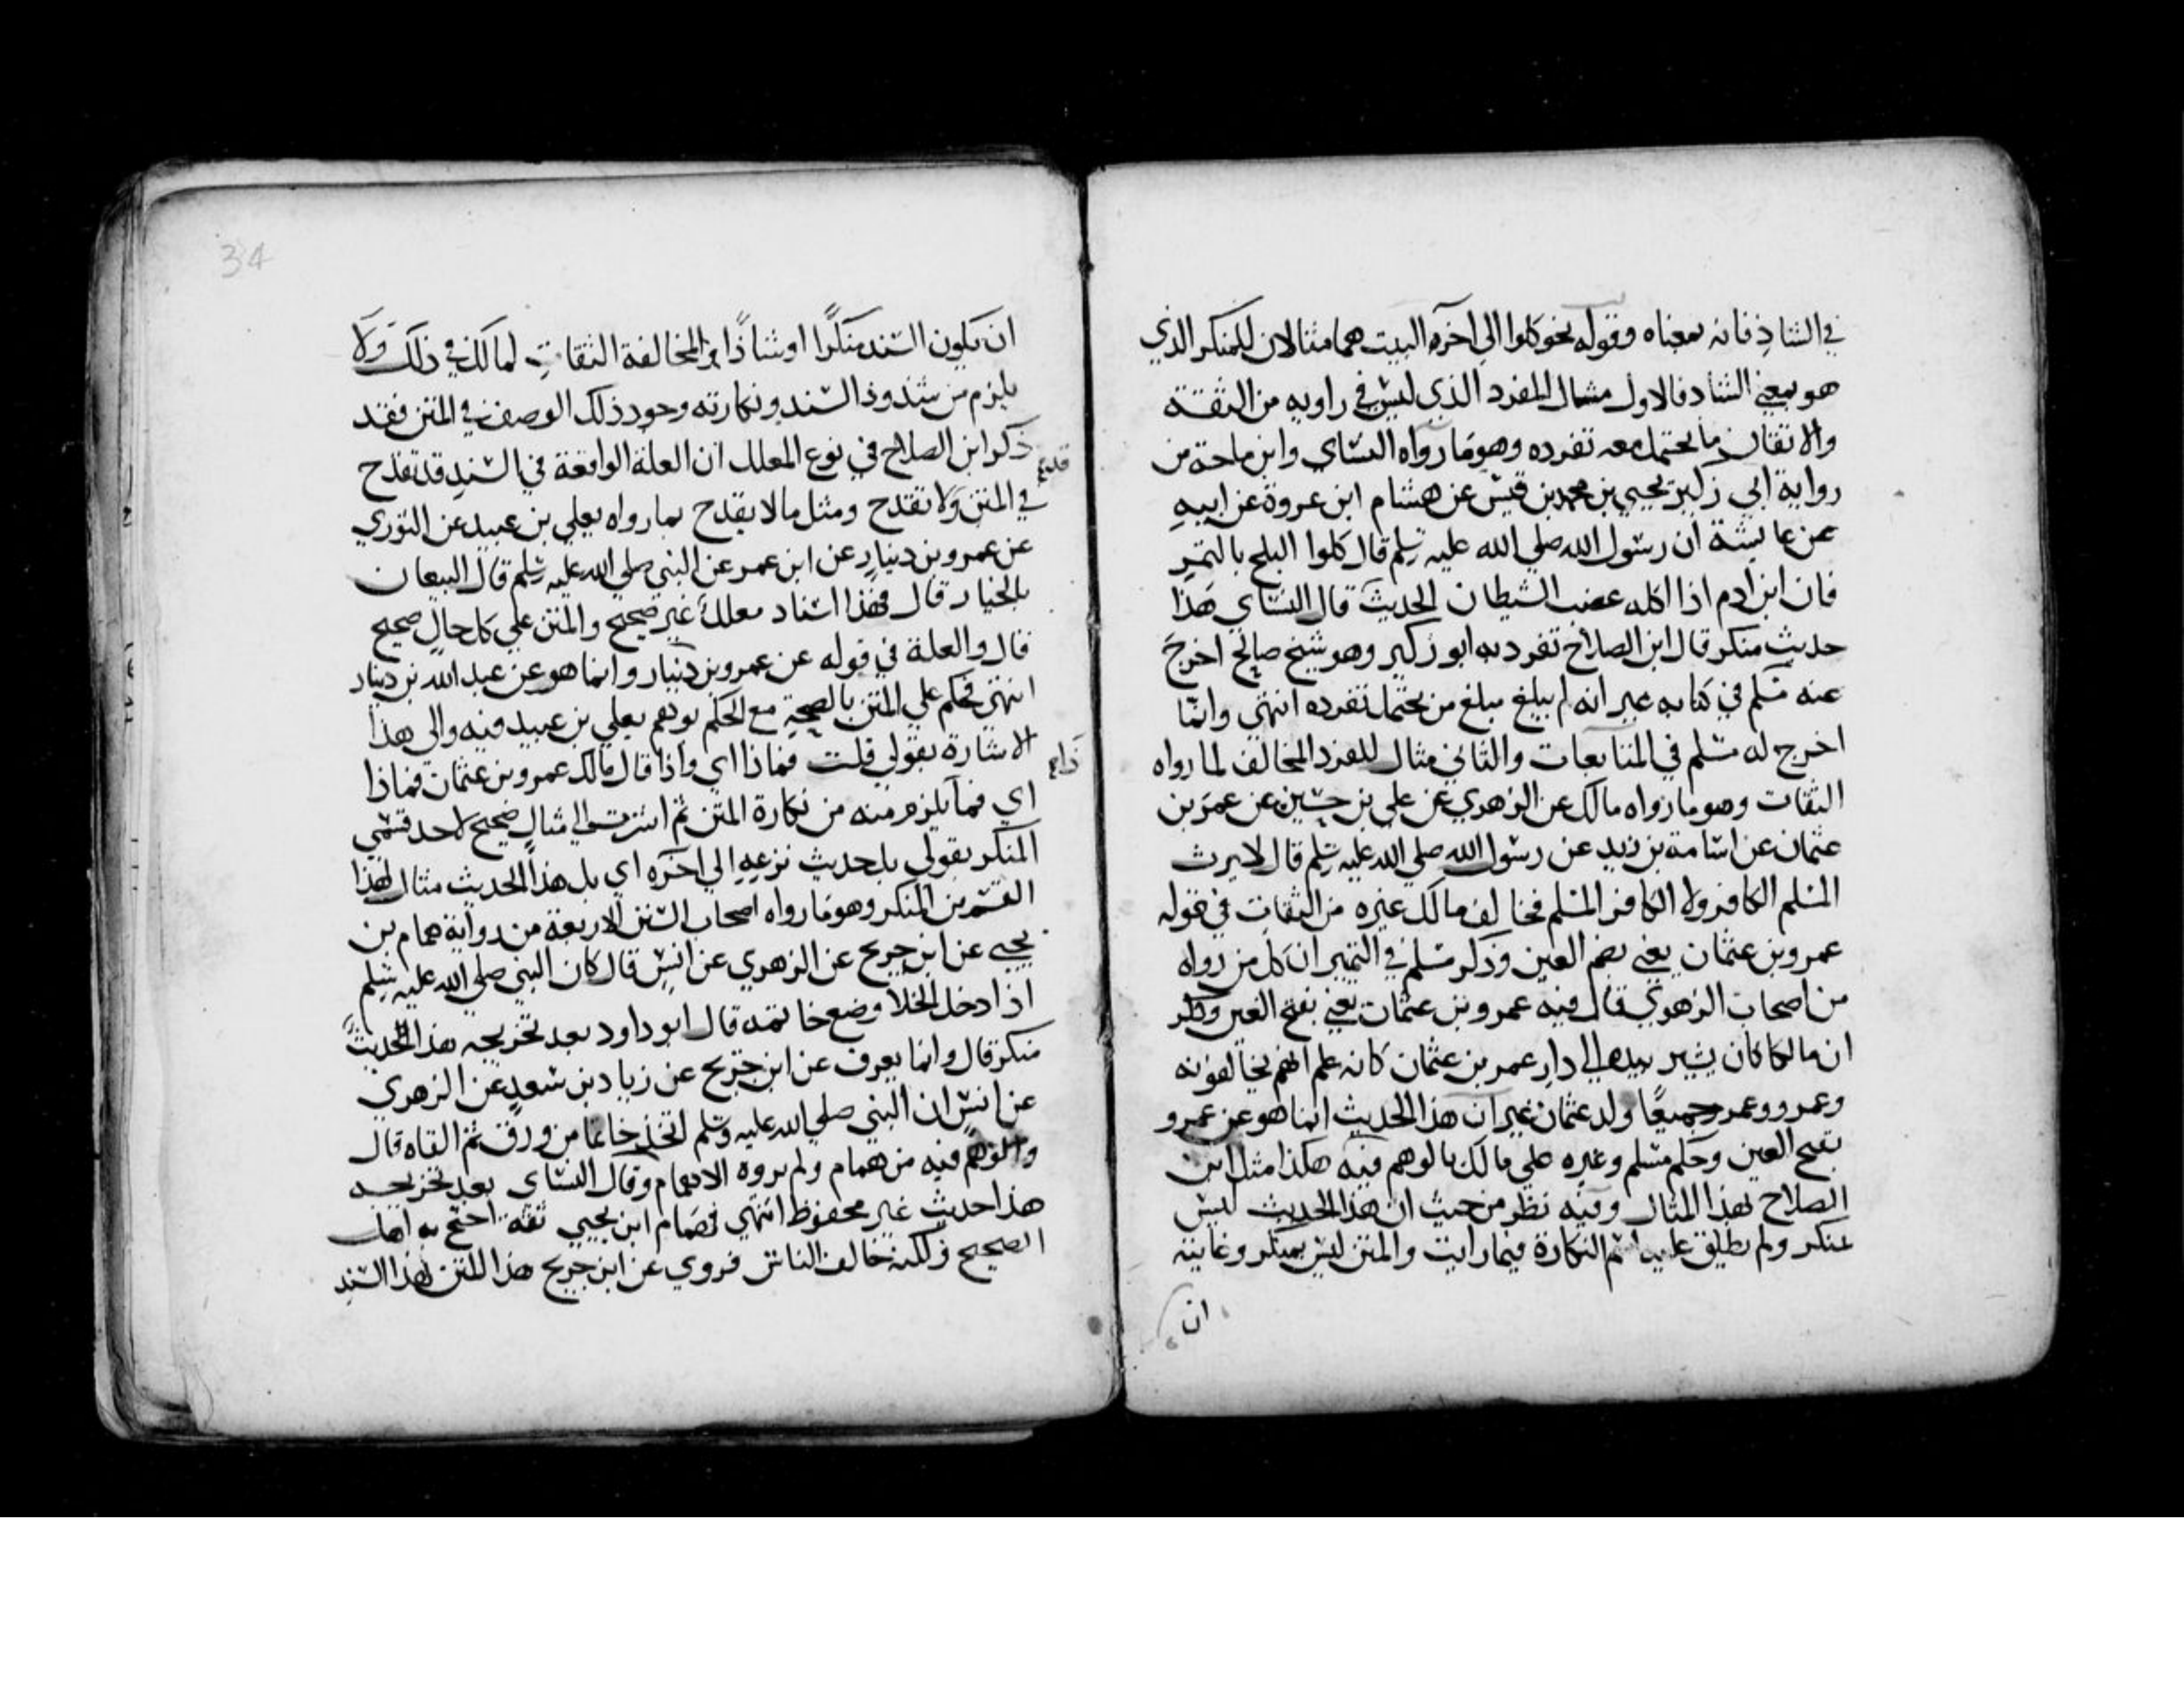 في الشاذ فانه بمعناه وقوله نحو كلوا الي آخره البيت هما مثالان للمنكر الذي
هو بمعني الشاذ فالاول مثال للفرد الذي ليس في راويه من الثقة
والاتقان ما يحتمل معه تفرده وهو ما رواه النساي وابن ماجة من
رواية ابي زكير يحيي بن محمد بن قيس عن هشام ابن عروة عن ابيه
عن عايشة ان رسول الله صلي الله عليه وسلم قال كلوا البلح بالتمر
فان ابن ادم اذا اكله غضب الشيطان الحديث قال النساي هذا
حديث منكر قال ابن الصلاح تفرد به ابو زكير وهو شيخ صالح اخرج
عنه مسلم في كتابه غير انه لم يبلغ مبلغ من يحتمل تفرده انتهى وانما
اخرج له مسلم في المتابعات والثاني مثال للفرد المخالف لما رواه
الثقات وهو ما رواه مالك عن الزهري عن علي بن حسين عن عمر بن
عثمان عن اسامة بن زيد عن رسول الله صلي الله عليه وسلم قال لا يرث
المسلم الكافر ولا الكافر المسلم فخالف مالك غيره من الثقات في قوله
عمر وبن عثمان يعني بضم العين وذكر مسلم في التمييز ان كل من رواه
من اصحاب الزهري قال فيه عمرو بن عثمان يعني بفتح العين وذكر
ان مالكا كان يشير بيده الي دار عمر بن عثمان كانه علم انهم يخالفونه
وعمرو وعمر جميعًا ولد عثمان غير ان هذا الحديث انما هو عن عمرو
بفتح العين وحكم مسلم وغيره علي مالك بالوهم فيه هكذا مثل ابن
الصلاح بهذا المثال وفيه نظر من حيث ان هذا الحديث ليس
بمنكر ولم يطلق عليه اسم النكارة فيما رايت والمتن ليس بمنكر وغايته
ان
34
ان يكون السند منكرًا او شاذًا لمخالفة الثقات لمالك في ذلك ولا
يلزم من شذوذ السند ونكارته وجود ذلك الوصف في المتن فقد
ذكر ابن الصلاح في نوع المعلل ان العلة الواقعة في السند قد تقدح
في المتن ولا تقدح ومثل مالا يقدح بما رواه يعلي بن عبيد عن الثوري
عن عمرو بن دينار عن ابن عمر عن النبي صلي الله عليه وسلم قال البيعان
بالخيار قال فهذا اسناد معلل غير صحيح والمتن علي كل حال صحيح
قال والعلة في قوله عن عمرو بن دينار وانما هو عن عبد الله بن دينار
انتهي فحكم علي المتن بالصحة مع الحكم بوهم يعلي بن عبيد فيه والي هذا
الاشارة بقولي قلت فماذا اي واذا قال مالك عمر وبن عثمان فماذا
اي فما يلزم منه من نكارة المتن ثم اشرت الي مثال صحيح لاحد قسمي
المنكر بقولي بل حديث نزعه الي آخره اي بل هذا الحديث مثال لهذا
القسم من المنكر وهو ما رواه اصحاب السنن الاربعة من رواية همام بن
يحيي عن ابن جريج عن الزهري عن انس قال كان النبي صلي الله عليه وسلم
اذا دخل الخلا وضع خاتمه قال ابو داود بعد تخريجه هذا الحديث
منكر قال وانما يعرف عن ابن جريج عن زياد بن سعد عن الزهري
عن انس ان النبي صلي الله عليه وسلم اتخذ خاتما من ورق ثم القاه قال
والوهم فيه من همام ولم يروه الا همام وقال النساي بعد تخريجه
هذا حديث غير محفوظ انتهي فهمام ابن يحيي ثقة احتج به اهل
الصحيح ولكنه خالف الناس فروي عن ابن جريج هذا المتن بهذا السند